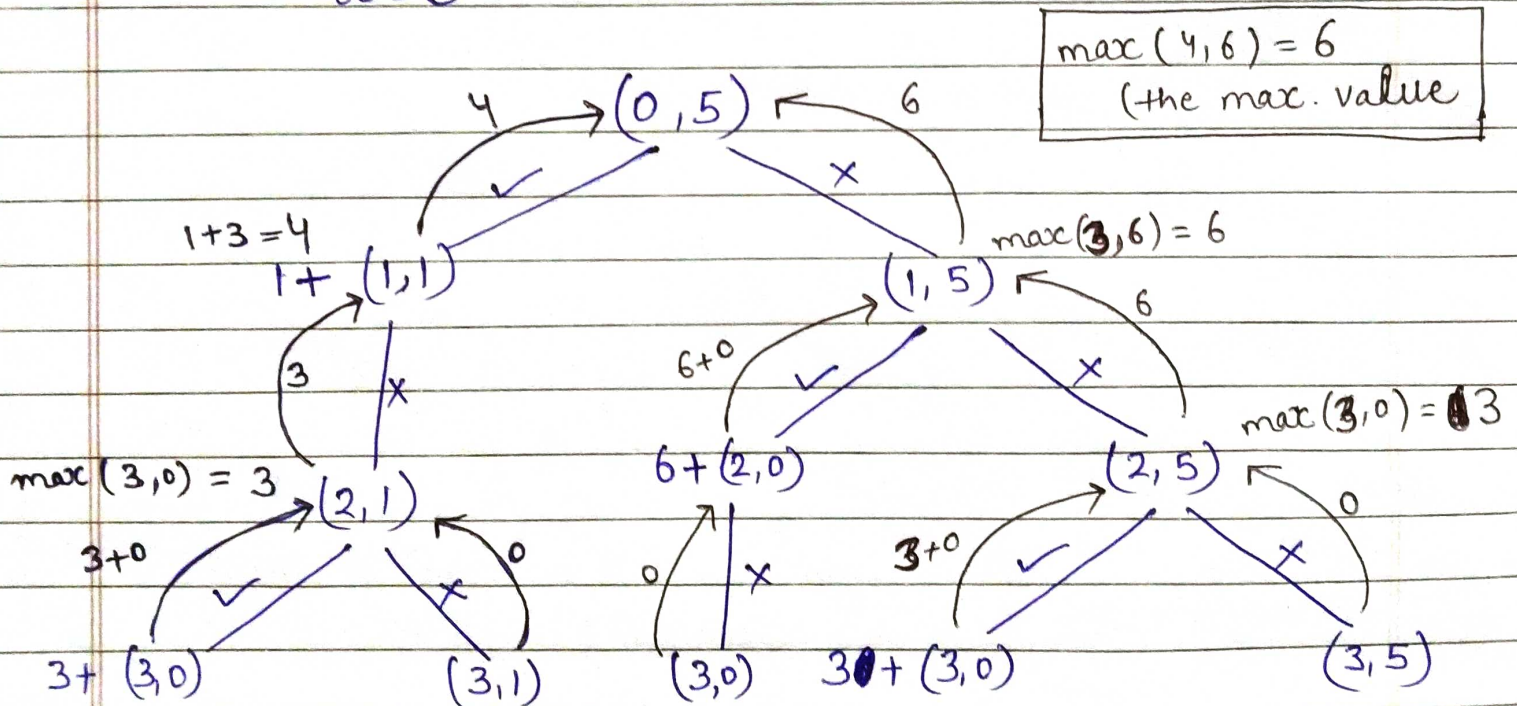 max (4,6) = 6
(the max. value
4 (0,5) 6
✓ ×
1+3=4
1+ (1,1)
max(3,6) = 6
(1,5)
3 ×
6+0 ✓ × 6
max (3,0) = 3
(2,1)
6+(2,0)
max (3,0) = 3
(2,5)
3+0 ✓ × 0
0 ×
3+0 ✓ × 0
3+ (3,0) (3,1) (3,0) 3 + (3,0) (3,5)